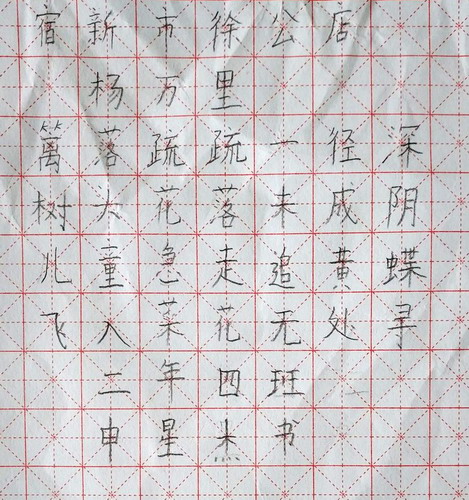 宿新市徐公店
杨万里
篱落疏疏一径深
树头花落未成阴
儿童急走追黄蝶
飞入菜花无处寻
二年四班
申星杰书